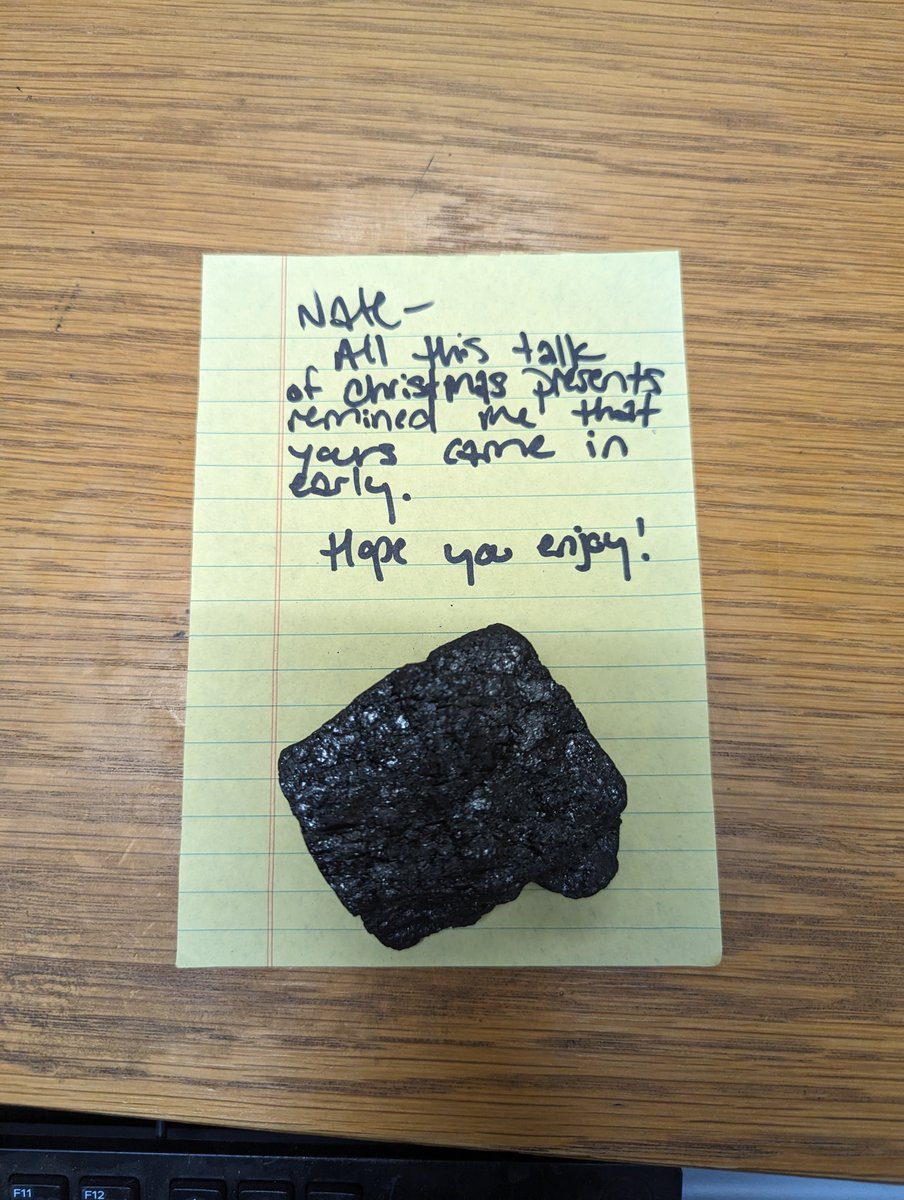 Nate-
All this talk
of christmas presents
remined me that
yours came in
early.
Hope you enjoy!
F11
F12